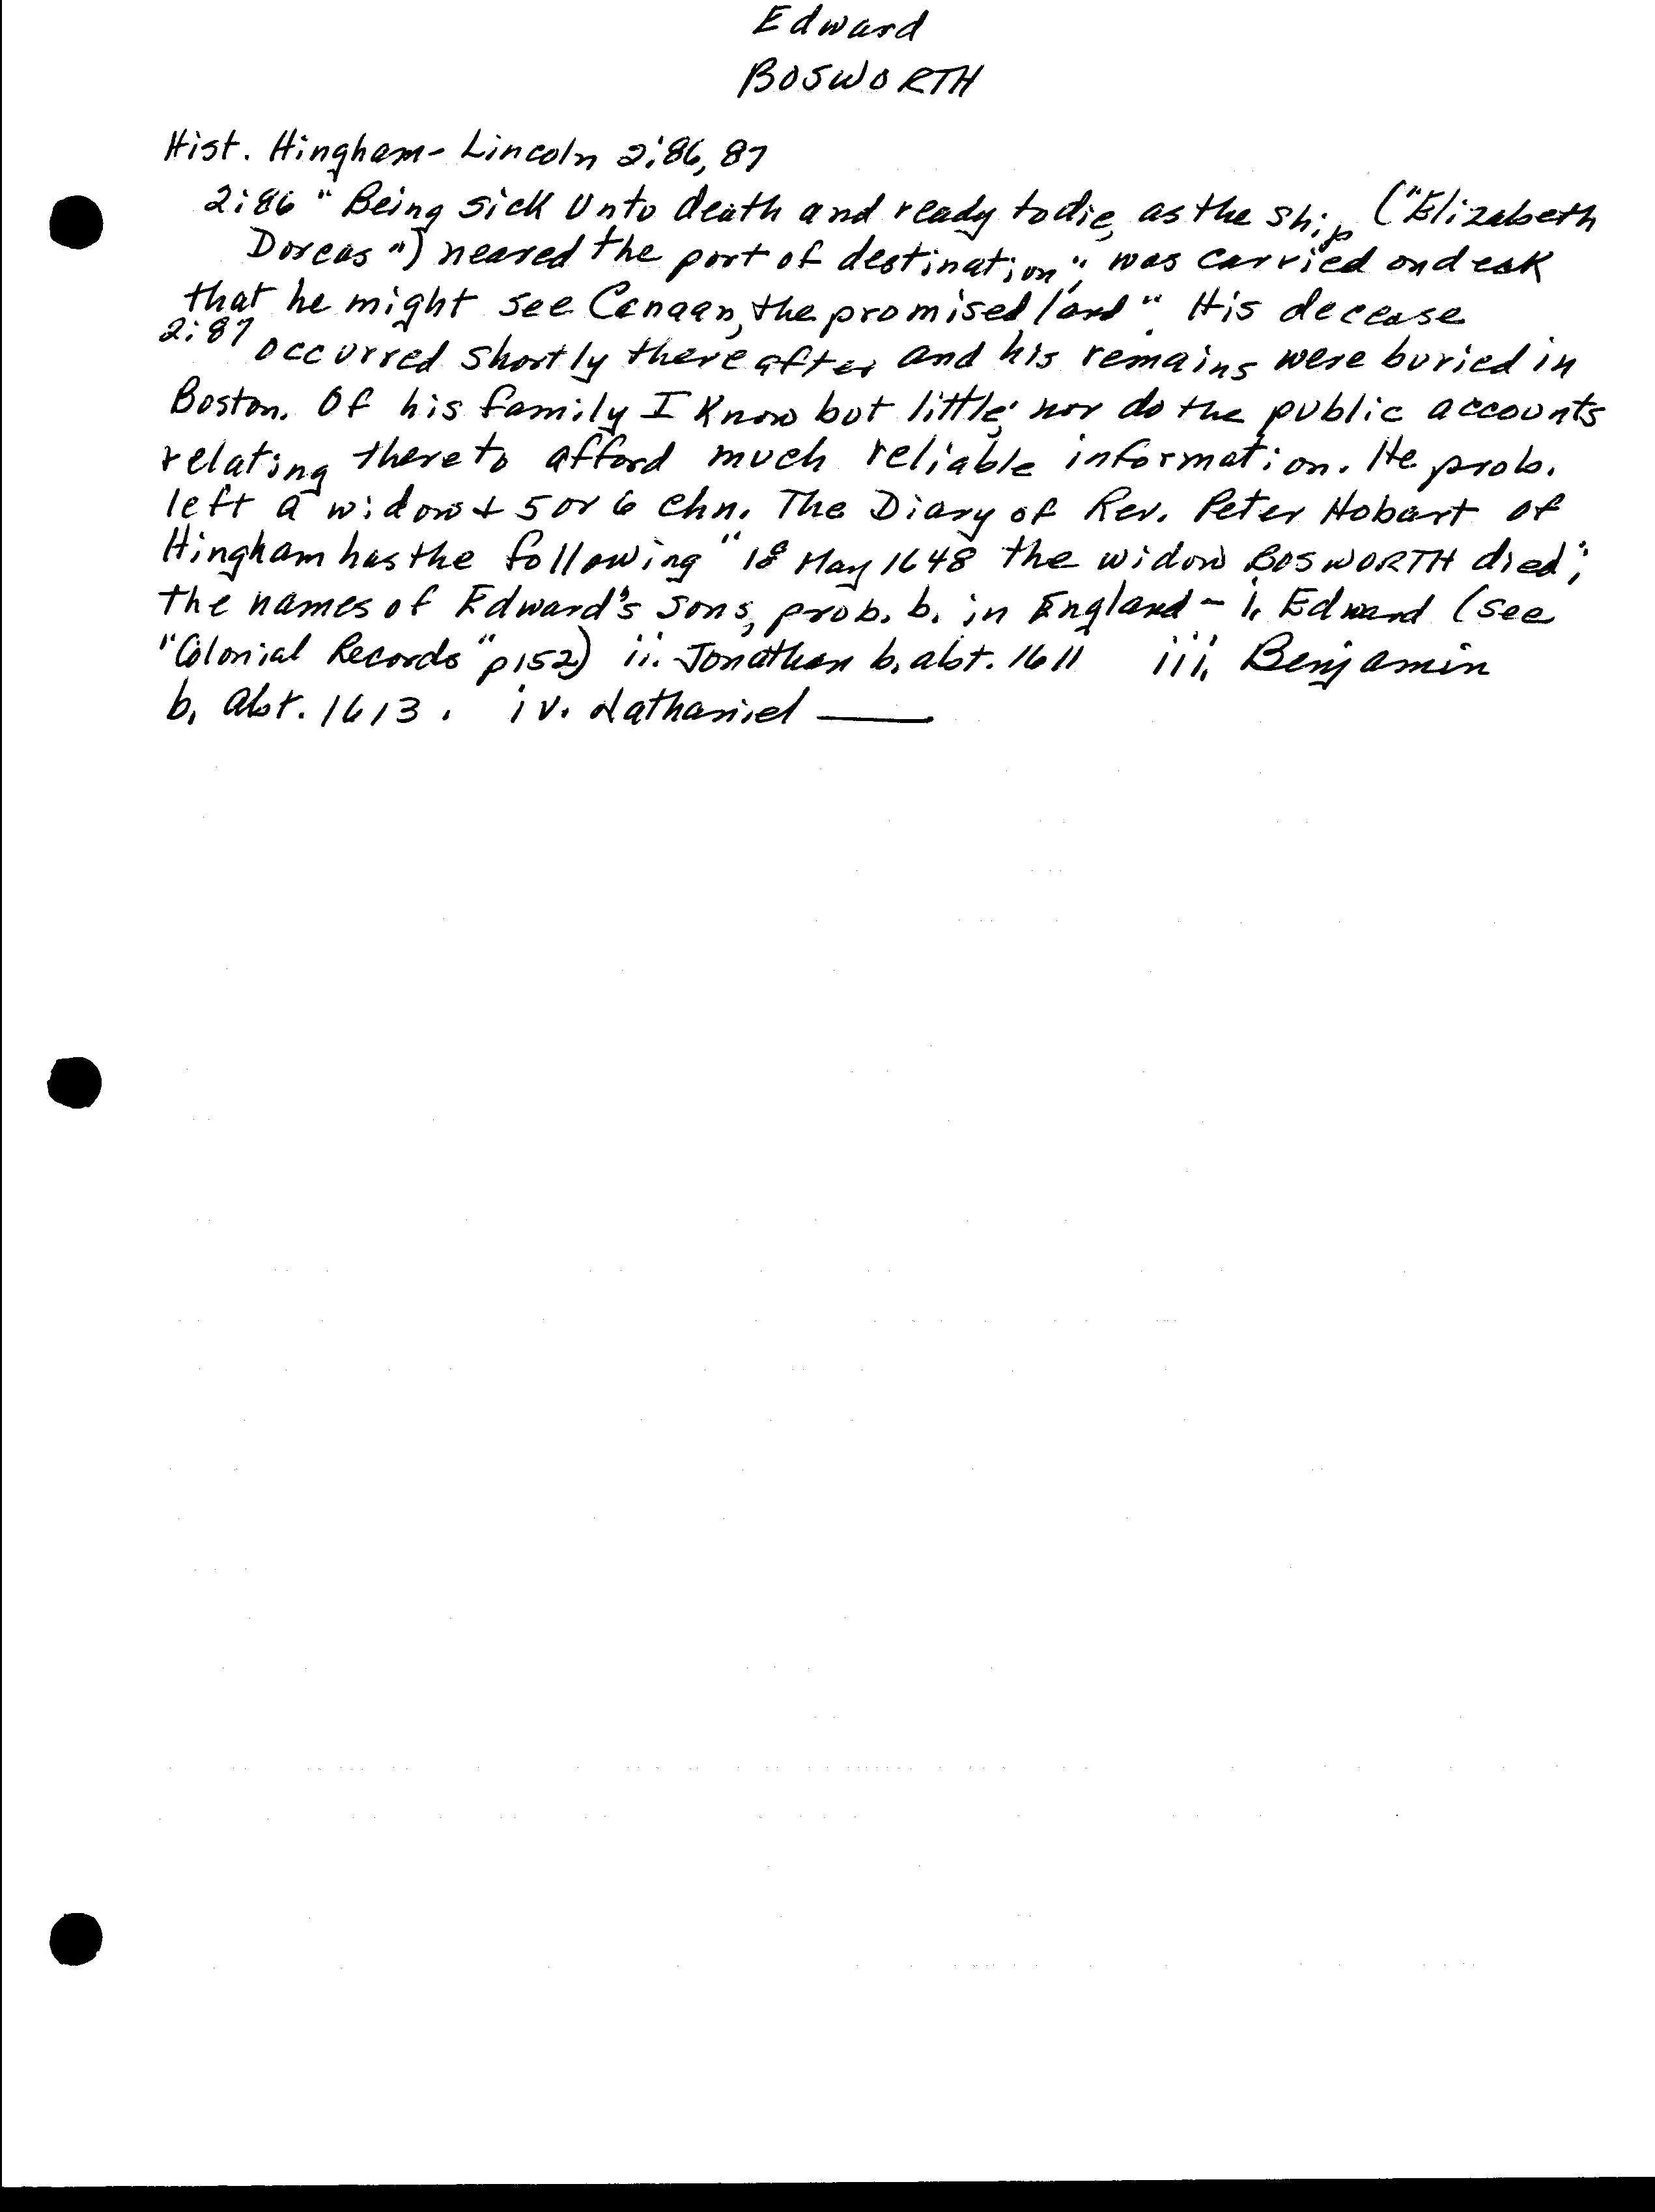 Edward
BOSWORTH
Hist. Hingham - Lincoln 2:86, 87
2:86 "Being sick unto death and ready to die, as the ship ("Elizabeth
Dorcas") neared the port of destination", was carried on deak
that he might see Canaan, the promised land". His decease
2:87 occurred shortly thereafter and his remains were buried in
Boston. Of his family I know but little; nor do the public accounts
relating thereto afford much reliable information. He prob.
left a widow + 5 or 6 chn. The Diary of Rev. Peter Hobart of
Hingham has the following "18 May 1648 the widow BOSWORTH died";
the names of Edward's sons, prob. b. in England - i. Edward (see
"Colonial Records" p152) ii. Jonathan b. abt. 1611 iii. Benjamin
b. abt. 1613. iv. Nathaniel ____